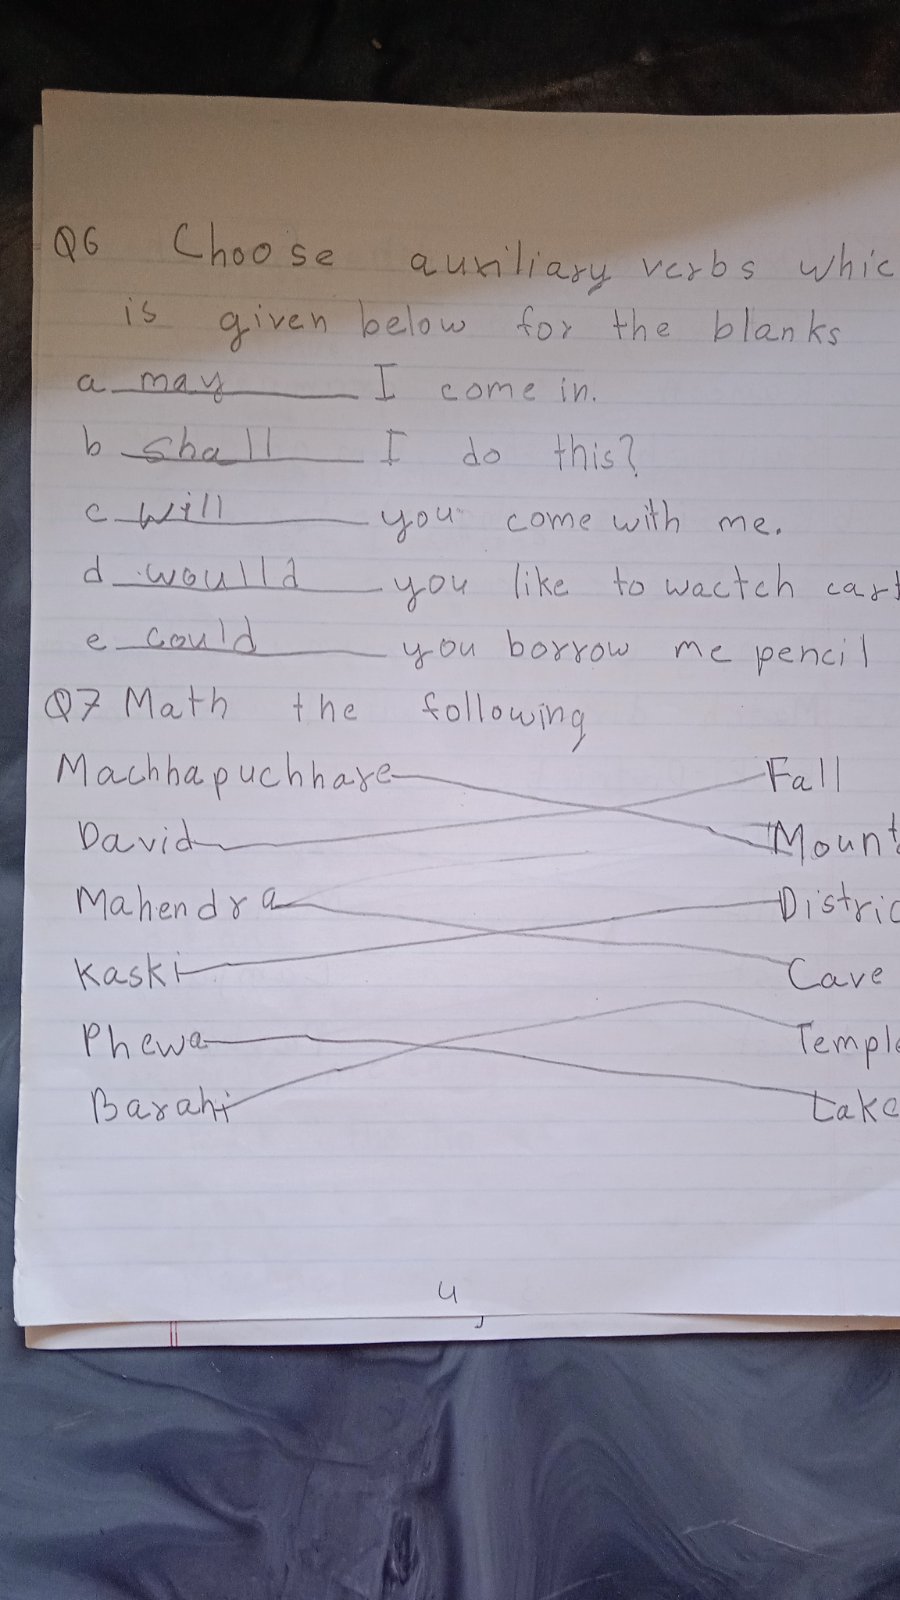 Q6 Choose auxiliary verbs whic
is given below for the blanks
a may I come in.
b shall I do this?
c will you come with me.
d woulld you like to wactch cart
e could you borrow me pencil
Q7 Math the following
Machhapuchhare Fall
David Mount
Mahendra Distric
Kaski Cave
Phewa Temple
Barahi Lake
4